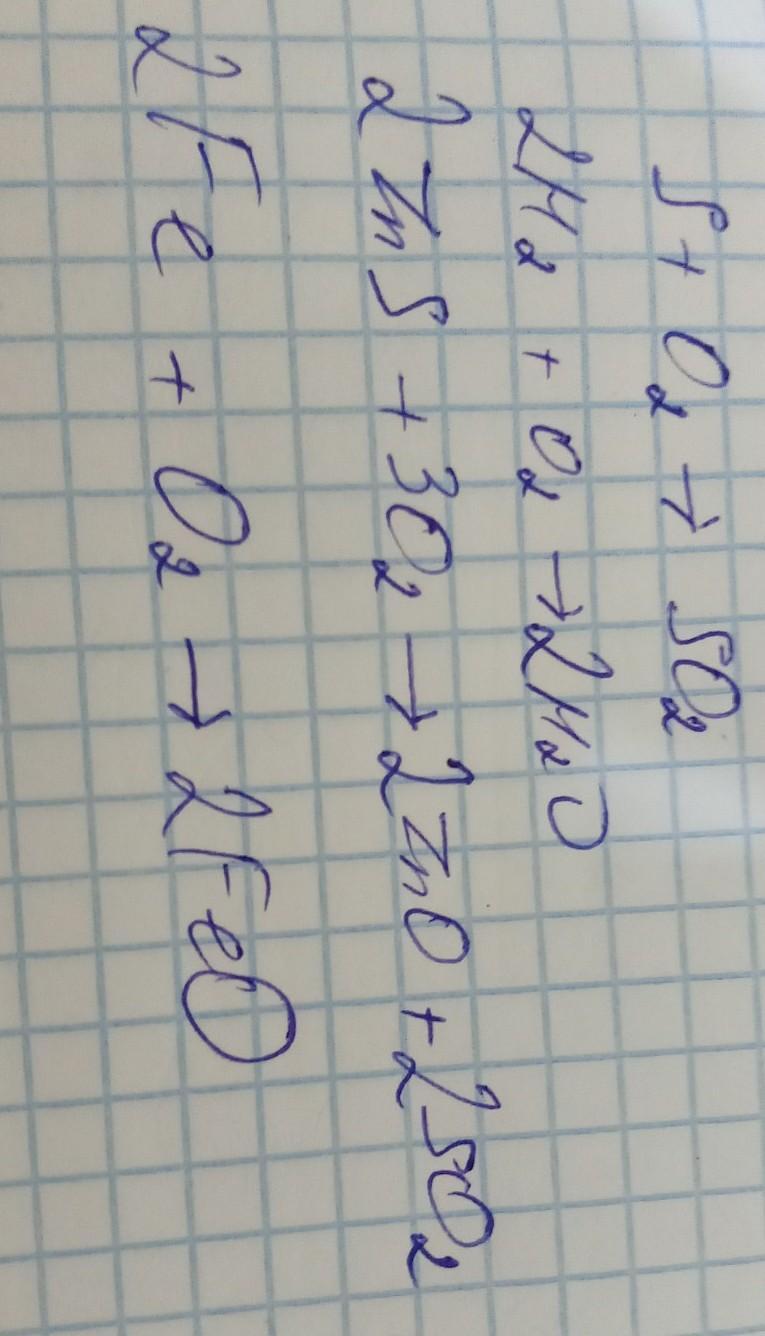 S + O₂ → SO₂
2H₂ + O₂ → 2H₂O
2ZnS + 3O₂ → 2ZnO + 2SO₂
2Fe + O₂ → 2FeO